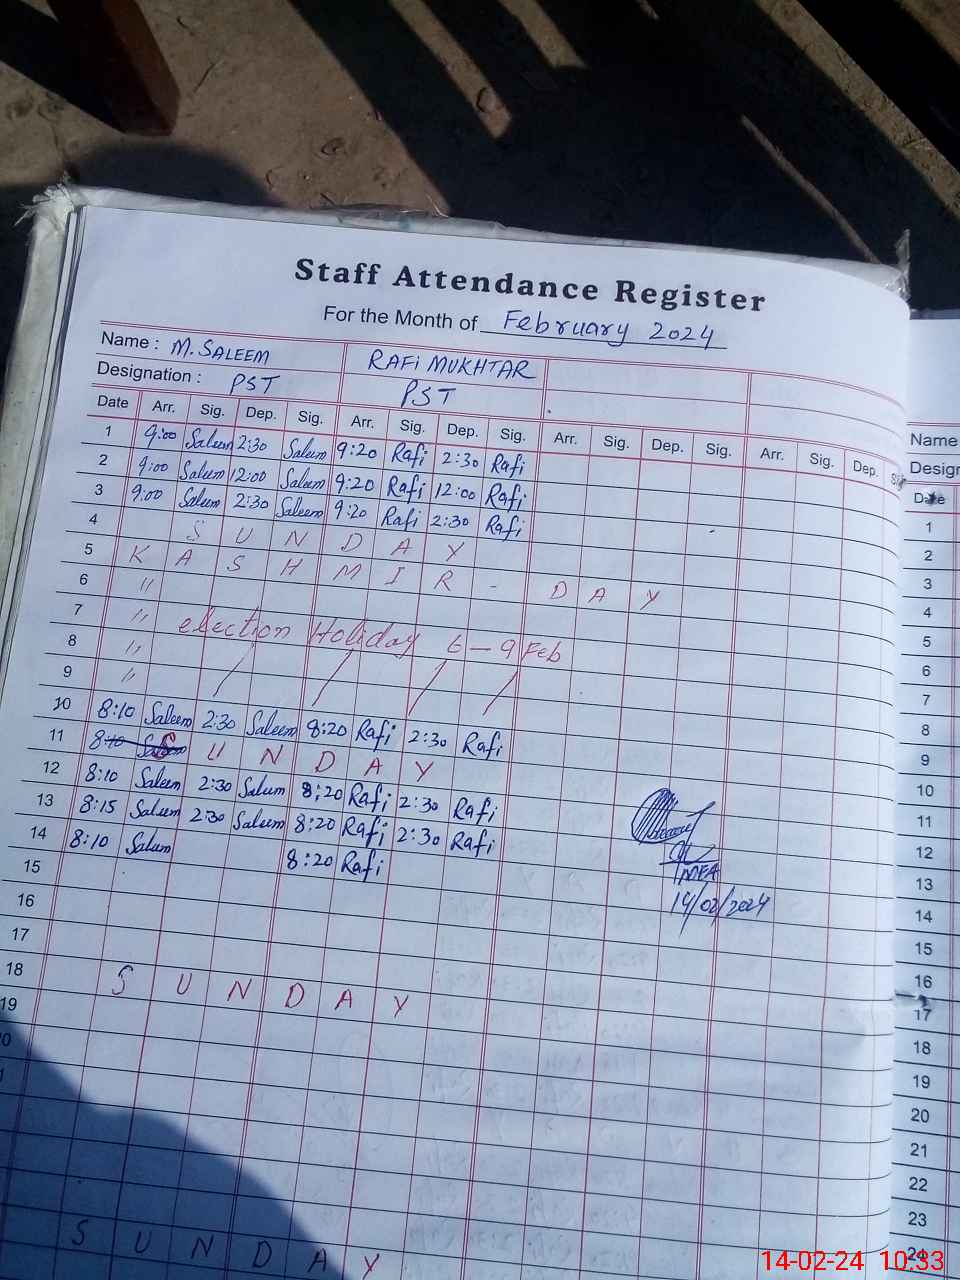 Staff Attendance Register
For the Month of February 2024
Name : M. SALEEM RAFI MUKHTAR
Designation : PST PST
Date Arr. Sig. Dep. Sig. Arr. Sig. Dep. Sig. Arr. Sig. Dep. Sig. Arr. Sig. Dep.
1 9:00 Saleem 2:30 Saleem 9:20 Rafi 2:30 Rafi
2 9:00 Saleem 12:00 Saleem 9:20 Rafi 12:00 Rafi
3 9:00 Saleem 2:30 Saleem 9:20 Rafi 2:30 Rafi
4 S U N D A Y
5 K A S H M I R - D A Y
6 "
7 " election Holiday 6 – 9 Feb
8 "
9 "
10 8:10 Saleem 2:30 Saleem 8:20 Rafi 2:30 Rafi
11 S U N D A Y
12 8:10 Saleem 2:30 Saleem 8:20 Rafi 2:30 Rafi
13 8:15 Saleem 2:30 Saleem 8:20 Rafi 2:30 Rafi
14 8:10 Saleem 8:20 Rafi
15
16
17
18 S U N D A Y
19
S U N D A Y
MEA
14/02/2024
Name
Design
Date
1
2
3
4
5
6
7
8
9
10
11
12
13
14
15
16
17
18
19
20
21
22
23
24
14-02-24 10:33